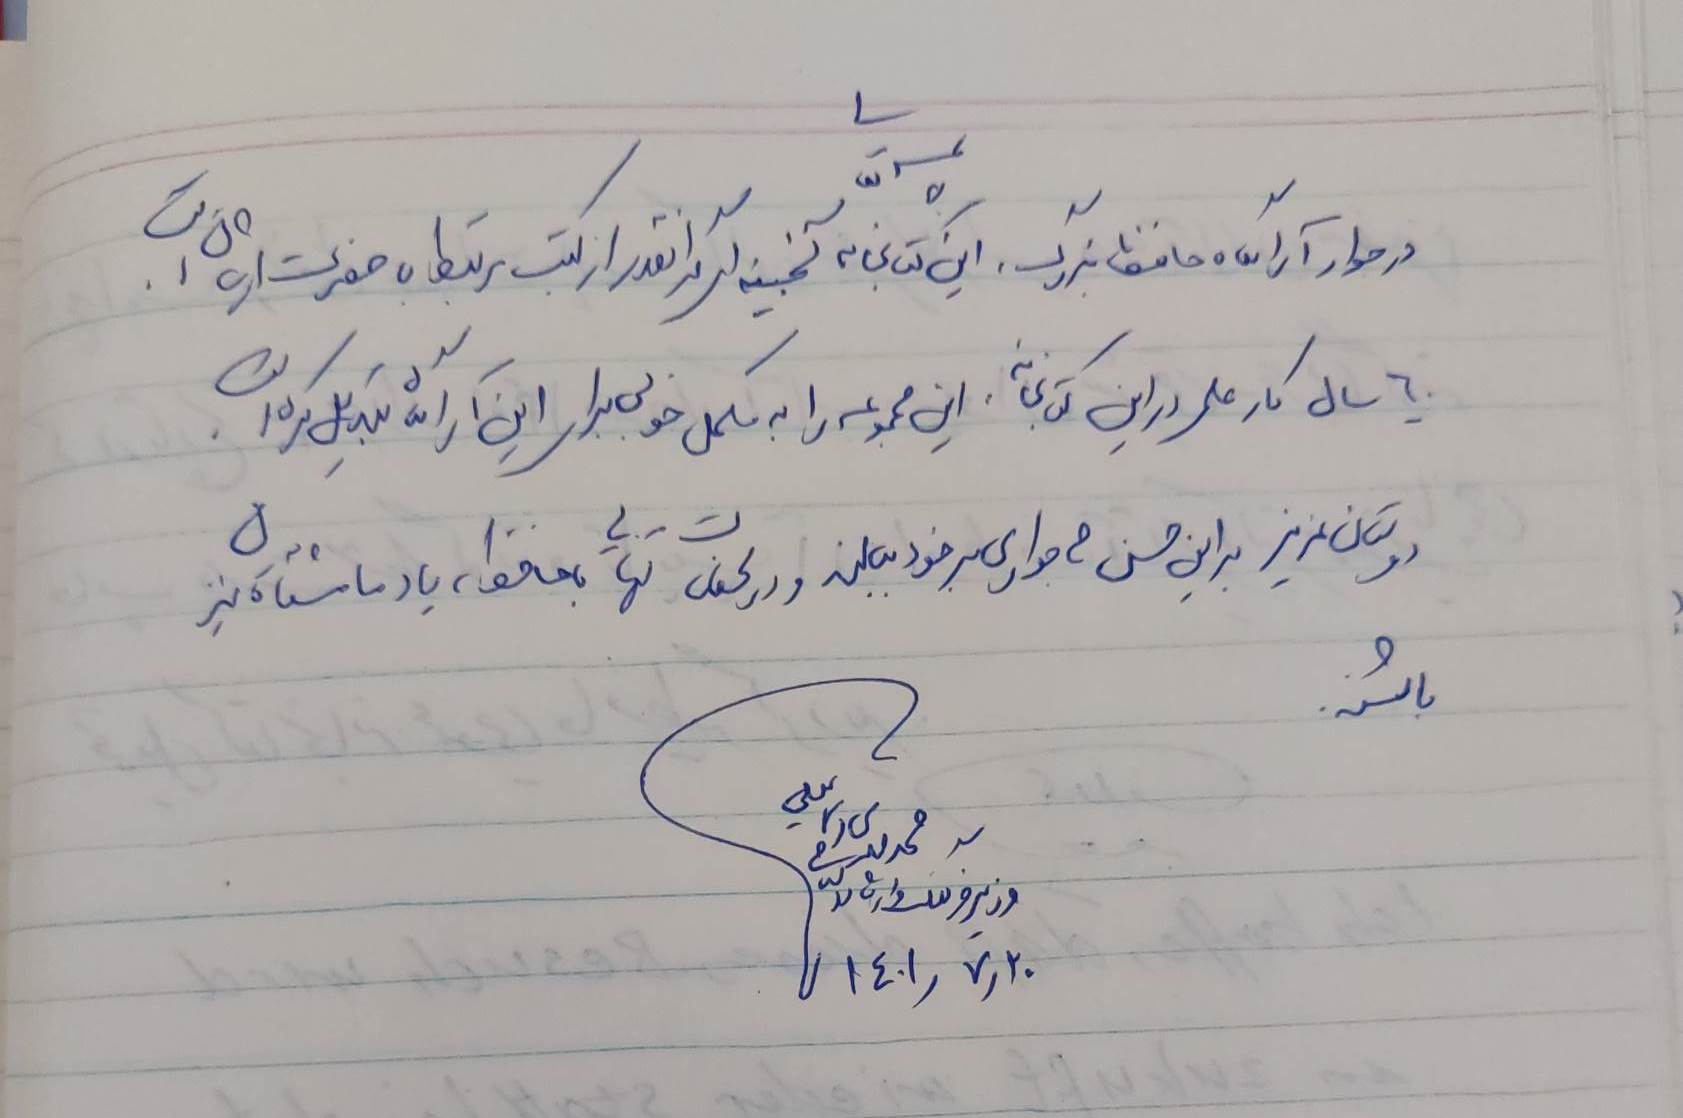 بسمه تعالی
در جوار آرامگاه حافظ بزرگ، این کتابخانه گنجینه‌ای گرانقدر از کتب مرتبط با حضرت ایشان است.
۶۰ سال کار علمی در این کتابخانه، این مجموعه را به مکمل خوبی برای این آرامگاه تبدیل کرده است.
دوستان عزیز بر این حسن همجواری بر خود ببالند و در لحظات تنهایی با حافظ، یاد ما مشتاقان نیز
باشند.
محمد مهدی اسماعیلی
وزیر فرهنگ و ارشاد اسلامی
۱۴۰۱/۷/۲۰